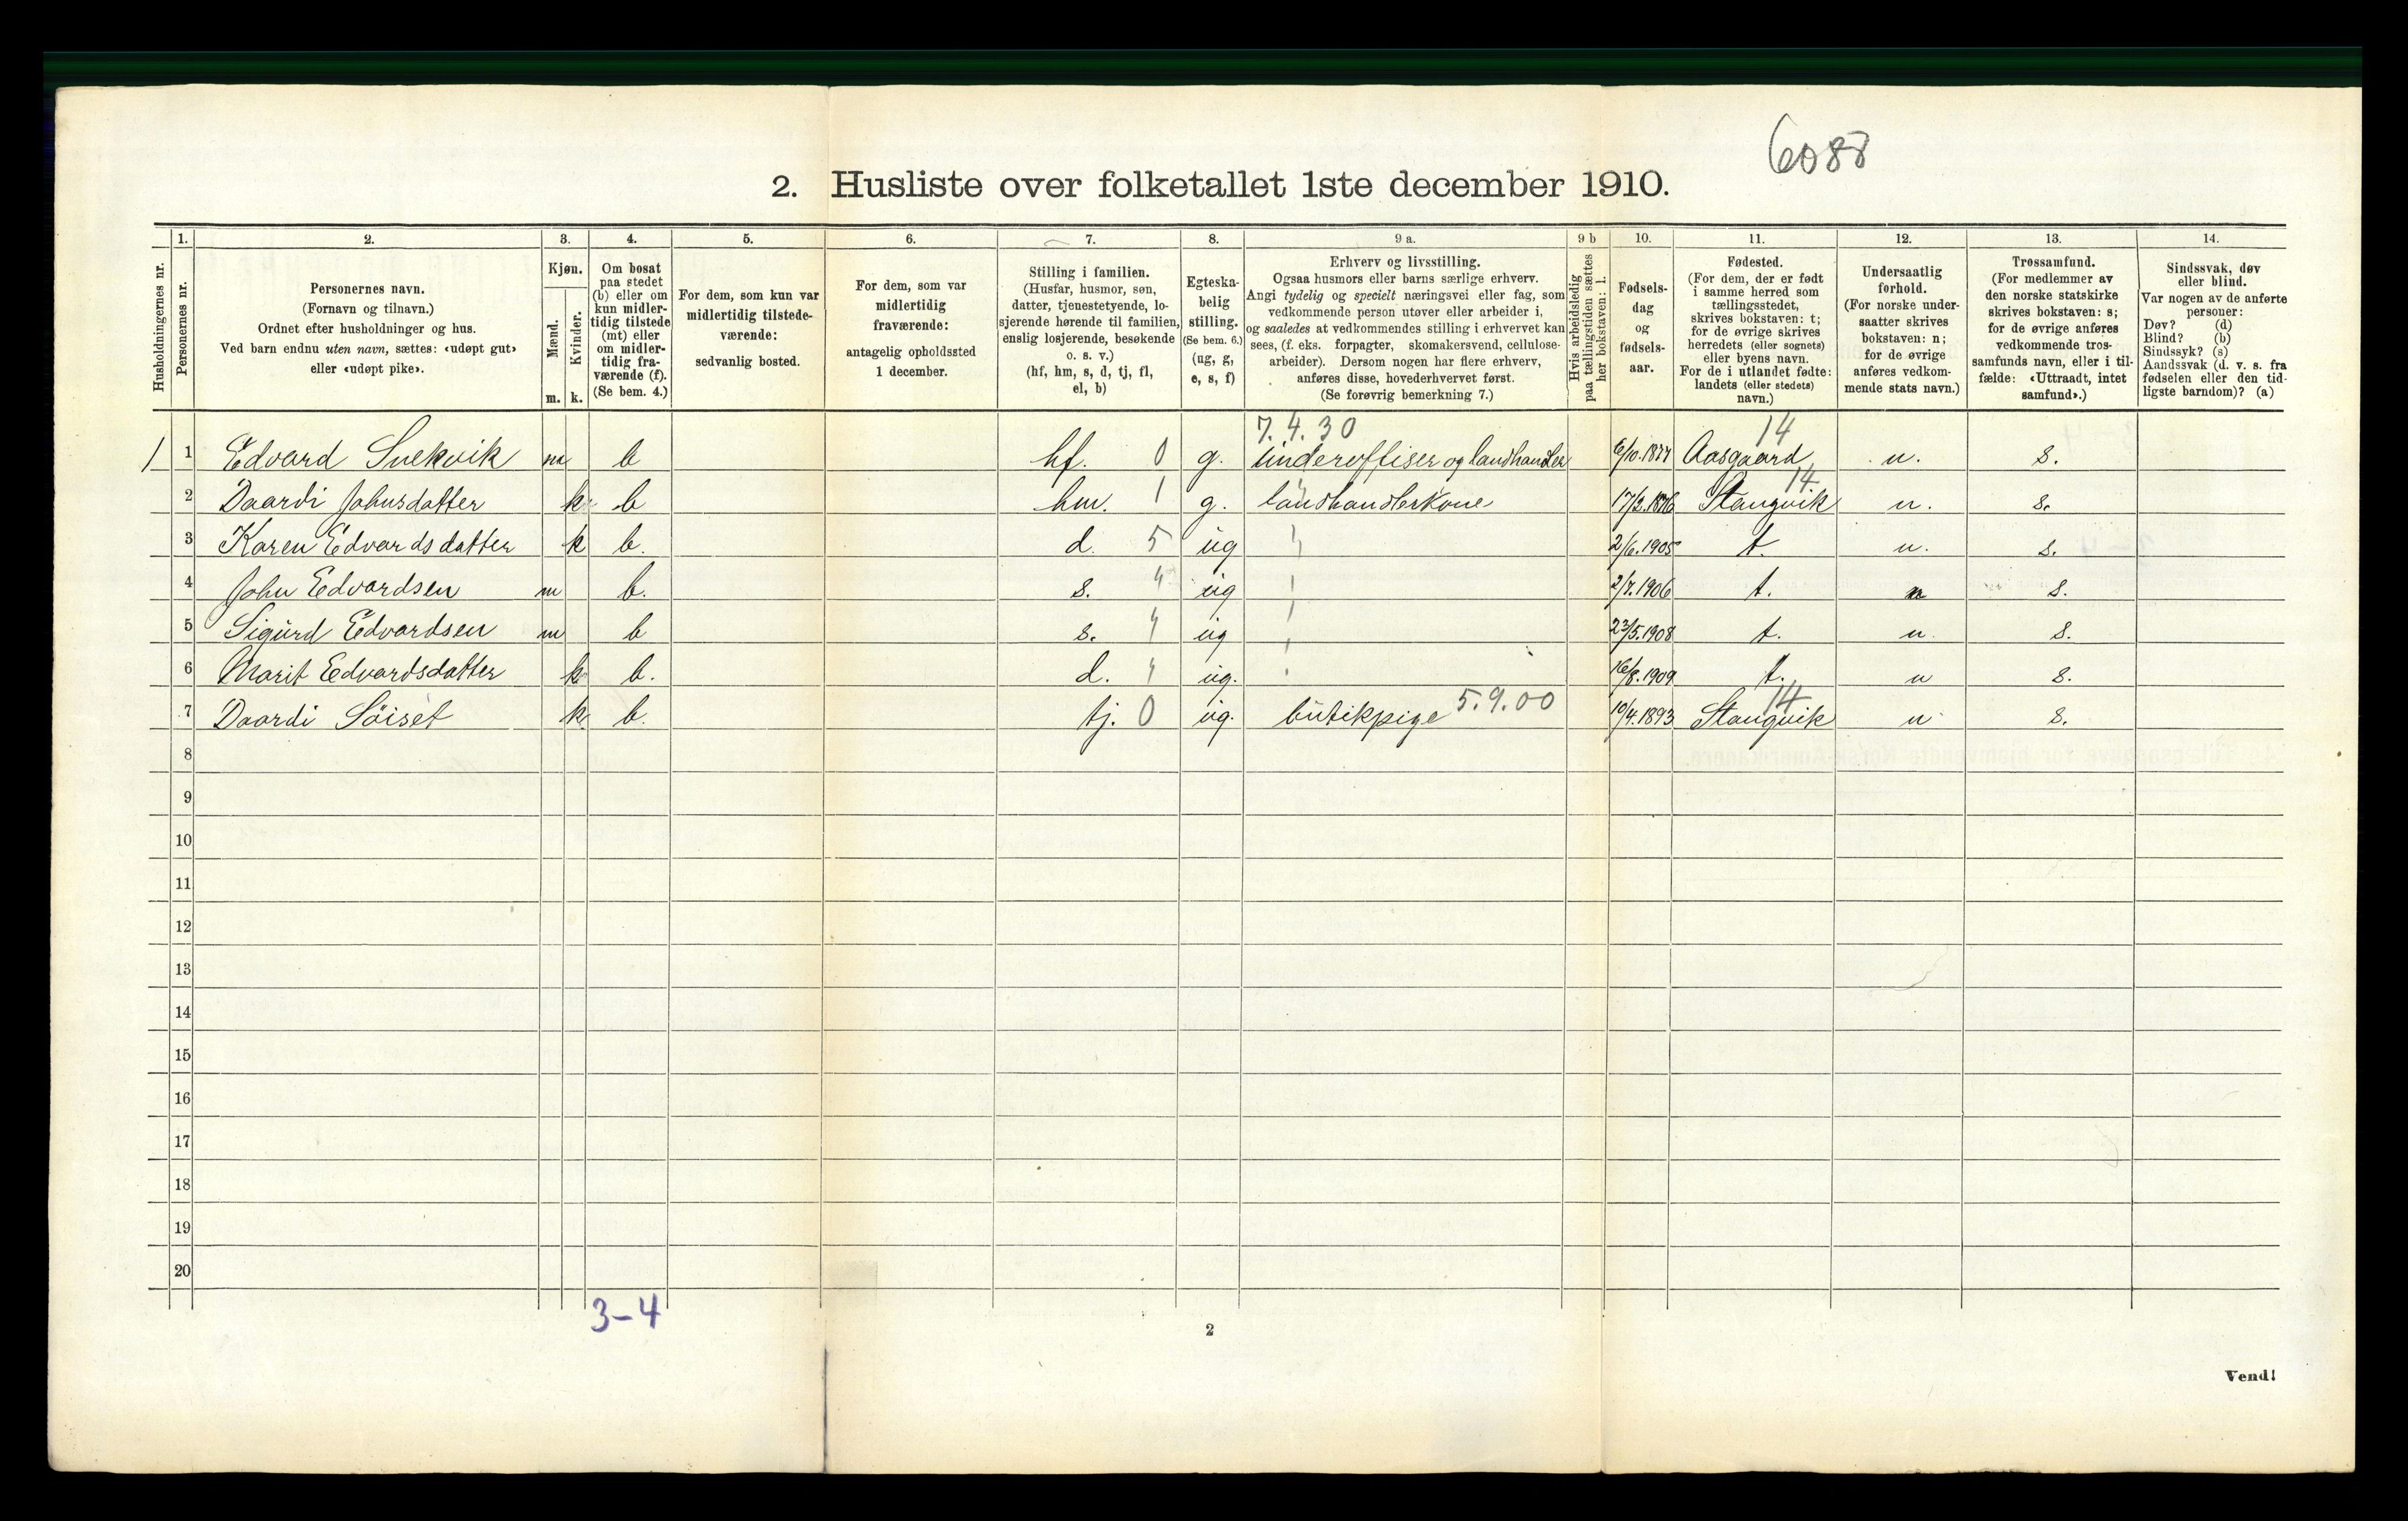 6088
2. Husliste over folketallet 1ste december 1910.
Husholdningernes nr.
1. Personernes nr.
2. Personernes navn.
(Fornavn og tilnavn.)
Ordnet efter husholdninger og hus.
Ved barn endnu uten navn, sættes: «udøpt gut»
eller «udøpt pike».
3. Kjøn.
Mænd. Kvinder.
m. k.
4. Om bosat
paa stedet
(b) eller om
kun midler-
tidig tilstede
(mt) eller
om midler-
tidig fra-
værende (f).
(Se bem. 4.)
5. For dem, som kun var
midlertidig tilstede-
værende:
sedvanlig bosted.
6. For dem, som var
midlertidig
fraværende:
antagelig opholdssted
1 december.
7. Stilling i familien.
(Husfar, husmor, søn,
datter, tjenestetyende, lo-
sjerende hørende til familien,
enslig losjerende, besøkende
o. s. v.)
(hf, hm, s, d, tj, fl,
el, b)
8. Egteska-
belig
stilling.
(Se bem. 6.)
(ug, g,
e, s, f)
9 a. Erhverv og livsstilling.
Ogsaa husmors eller barns særlige erhverv.
Angi tydelig og specielt næringsvei eller fag, som
vedkommende person utøver eller arbeider i,
og saaledes at vedkommendes stilling i erhvervet kan
sees, (f. eks. forpagter, skomakersvend, cellulose-
arbeider). Dersom nogen har flere erhverv,
anføres disse, hovederhvervet først.
(Se forøvrig bemerkning 7.)
9 b Hvis arbeidsledig
paa tællingstiden sættes
her bokstaven: l.
10. Fødsels-
dag
og
fødsels-
aar.
11. Fødested.
(For dem, der er født
i samme herred som
tællingsstedet,
skrives bokstaven: t;
for de øvrige skrives
herredets (eller sognets)
eller byens navn.
For de i utlandet fødte:
landets (eller stedets)
navn.)
12. Undersaatlig
forhold.
(For norske under-
saatter skrives
bokstaven: n;
for de øvrige
anføres vedkom-
mende stats navn.)
13. Trossamfund.
(For medlemmer av
den norske statskirke
skrives bokstaven: s;
for de øvrige anføres
vedkommende tros-
samfunds navn, eller i til-
fælde: «Uttraadt, intet
samfund».)
14. Sindssvak, døv
eller blind.
Var nogen av de anførte
personer:
Døv? (d)
Blind? (b)
Sindssyk? (s)
Aandssvak (d. v. s. fra
fødselen eller den tid-
ligste barndom)? (a)
7.4.30 14
1 1 Edvard Snekvik m b hf. 0 g. Underoffiser og landhandler 6/10.1877 Aasgaard n. s.
14
2 Daardi Johnsdatter k b hm. 1 g. landhandlerkone 17/2.1876 Stangvik n. s.
3 Karen Edvardsdatter k b. d. 5 ug 2/6.1905 t. n. s.
4 John Edvardsen m b. s. " ug 2/7.1906 t. n s.
5 Sigurd Edvardsen m b s. " ug 23/5.1908 t. n. s.
6 Marit Edvardsdatter k b. d. " ug. 16/8.1909 t. n s.
5.9.00 14
7 Daardi Söiset k b. tj. 0 ug. butikpige 10/4.1893 Stangvik n s.
8
9
10
11
12
13
14
15
16
17
18
19
20
3-4
2
Vend!